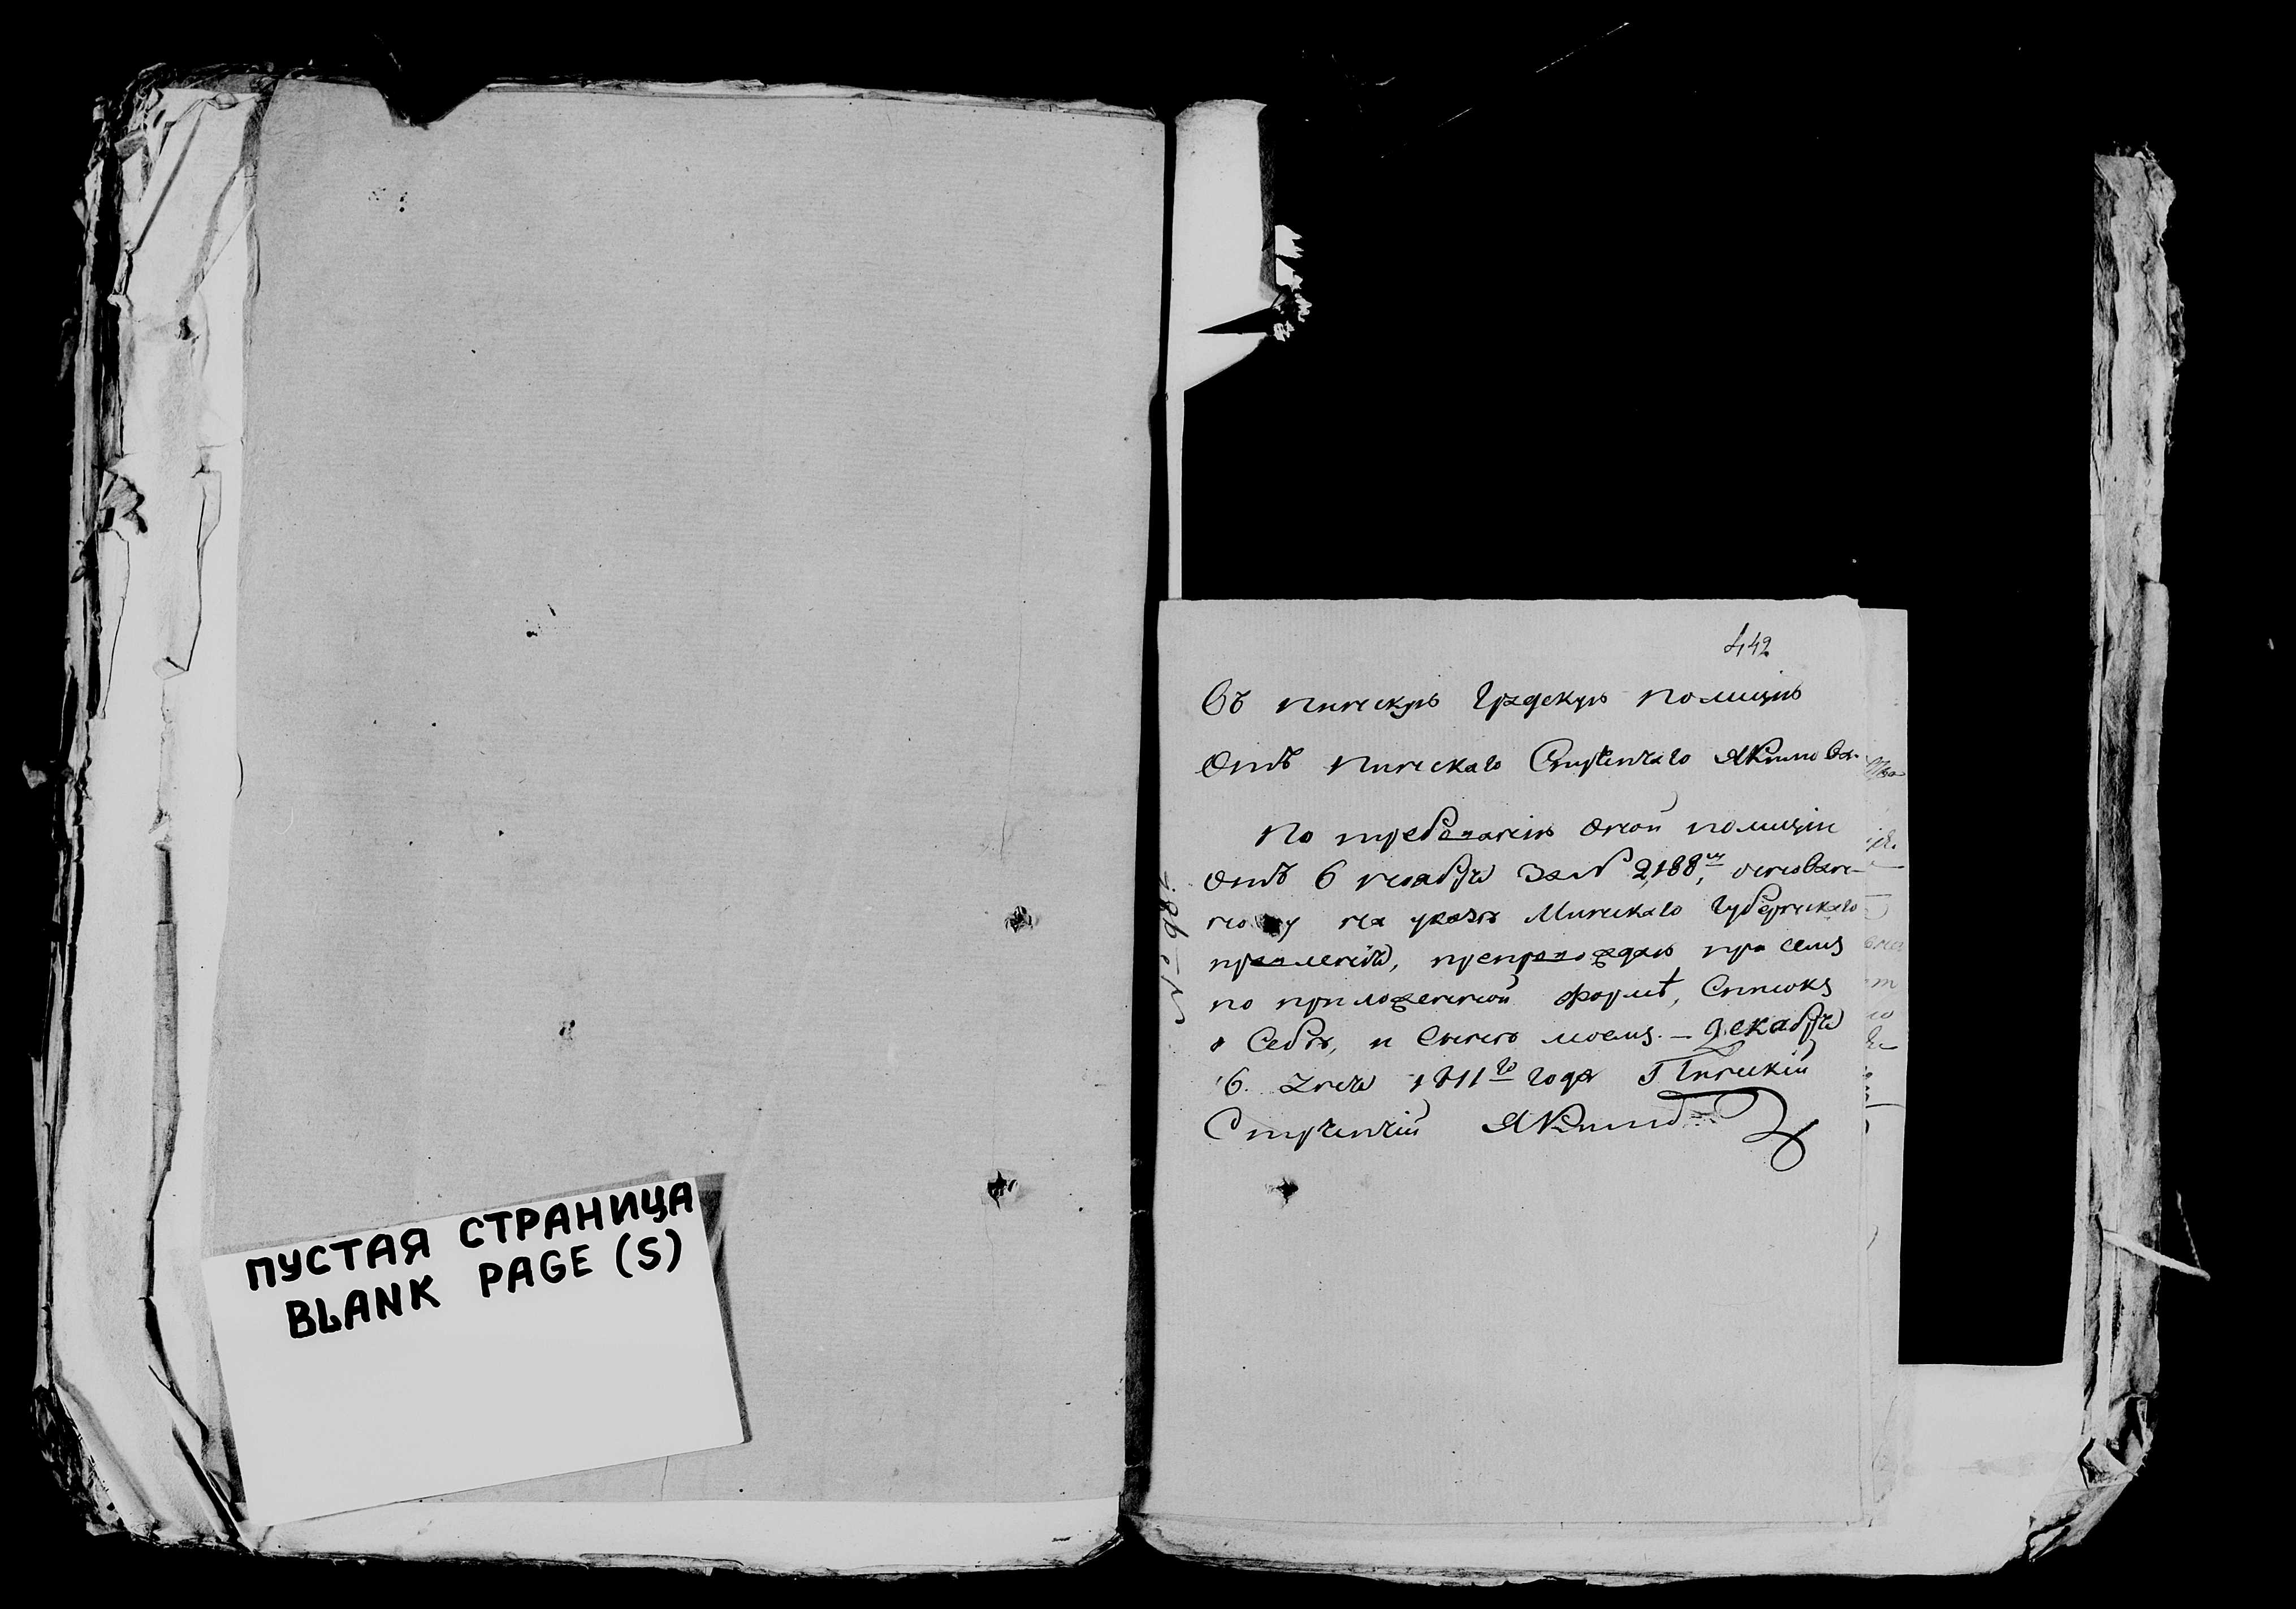 ПУСТАЯ СТРАНИЦА
BLANK PAGE (S)
442
Въ Пинскую Градскую Полицiю
Отъ Пинскаго Стряпчаго Якимова
По требованiю оной полицiи
отъ 6 ноября За № 2188м, основан-
ному на указѣ Минскаго Губернскаго
правленiя, препровождаю при семъ
по приложенной формѣ, Списокъ
о Себѣ, и Сынѣ моемъ. – Декабря
6. дня 1811го года Пинскiй
Стряпчiй Якимовъ
№ 986.